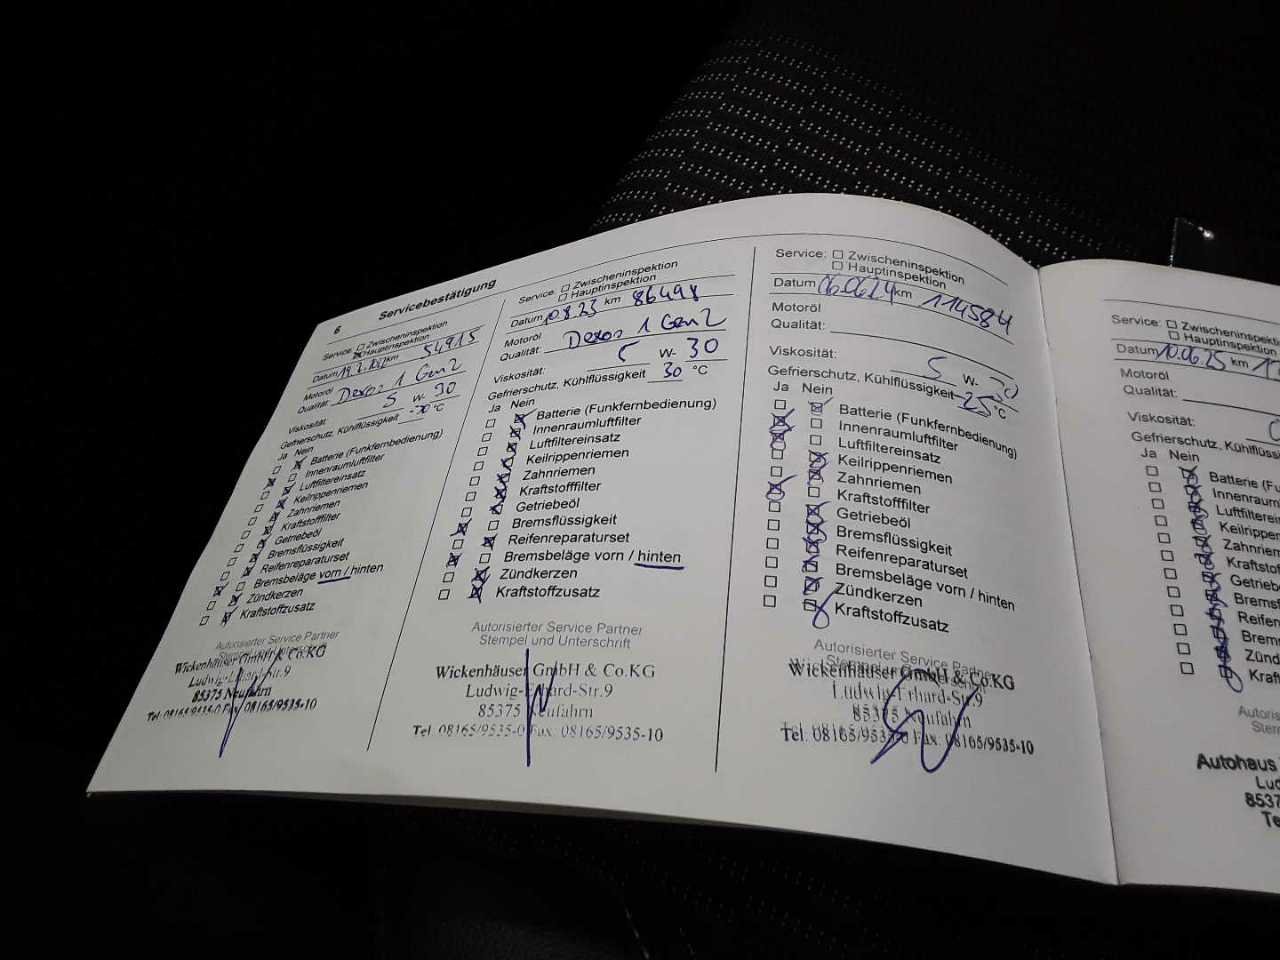 6 Servicebestätigung
Service: Zwischeninspektion
Hauptinspektion
Datum km 54915
Motoröl
Qualität: Dexos 1 Gen2
Viskosität: 5 W- 30
Gefrierschutz, Kühlflüssigkeit -30 °C
Ja Nein
Batterie (Funkfernbedienung)
Innenraumluftfilter
Luftfiltereinsatz
Keilrippenriemen
Zahnriemen
Kraftstofffilter
Getriebeöl
Bremsflüssigkeit
Reifenreparaturset
Bremsbeläge vorn / hinten
Zündkerzen
Kraftstoffzusatz
Autorisierter Service Partner
Stempel und Unterschrift
Wickenhäuser GmbH & Co.KG
Ludwig-Erhard-Str.9
85375 Neufahrn
Tel. 08165/9535-0 Fax. 08165/9535-10
Service: Zwischeninspektion
Hauptinspektion
Datum km 86498
Motoröl
Qualität: Dexos 1 Gen2
Viskosität: 5 W- 30
Gefrierschutz, Kühlflüssigkeit 30 °C
Ja Nein
Batterie (Funkfernbedienung)
Innenraumluftfilter
Luftfiltereinsatz
Keilrippenriemen
Zahnriemen
Kraftstofffilter
Getriebeöl
Bremsflüssigkeit
Reifenreparaturset
Bremsbeläge vorn / hinten
Zündkerzen
Kraftstoffzusatz
Autorisierter Service Partner
Stempel und Unterschrift
Wickenhäuser GmbH & Co.KG
Ludwig-Erhard-Str.9
85375 Neufahrn
Tel. 08165/9535-0 Fax. 08165/9535-10
Service: Zwischeninspektion
Hauptinspektion
Datum 06.06.24 km 114584
Motoröl
Qualität:
Viskosität: 5 W-
Gefrierschutz, Kühlflüssigkeit -25 °C
Ja Nein
Batterie (Funkfernbedienung)
Innenraumluftfilter
Luftfiltereinsatz
Keilrippenriemen
Zahnriemen
Kraftstofffilter
Getriebeöl
Bremsflüssigkeit
Reifenreparaturset
Bremsbeläge vorn / hinten
Zündkerzen
Kraftstoffzusatz
Autorisierter Service Partner
Stempel
Wickenhäuser GmbH & Co.KG
Ludwig-Erhard-Str.9
85375 Neufahrn
Tel. 08165/9535-0 Fax. 08165/9535-10
Service: Zwischeninspekti
Hauptinspektion
Datum 10.06.25 km
Motoröl
Qualität:
Viskosität:
Gefrierschutz, Kühlflüssi
Ja Nein
Batterie (Fu
Innenraum
Luftfilterein
Keilrippen
Zahnriem
Kraftstof
Getrieb
Bremsf
Reifen
Brem
Zünd
Kraft
Autoris
Stem
Autohaus
Lud
853
Te